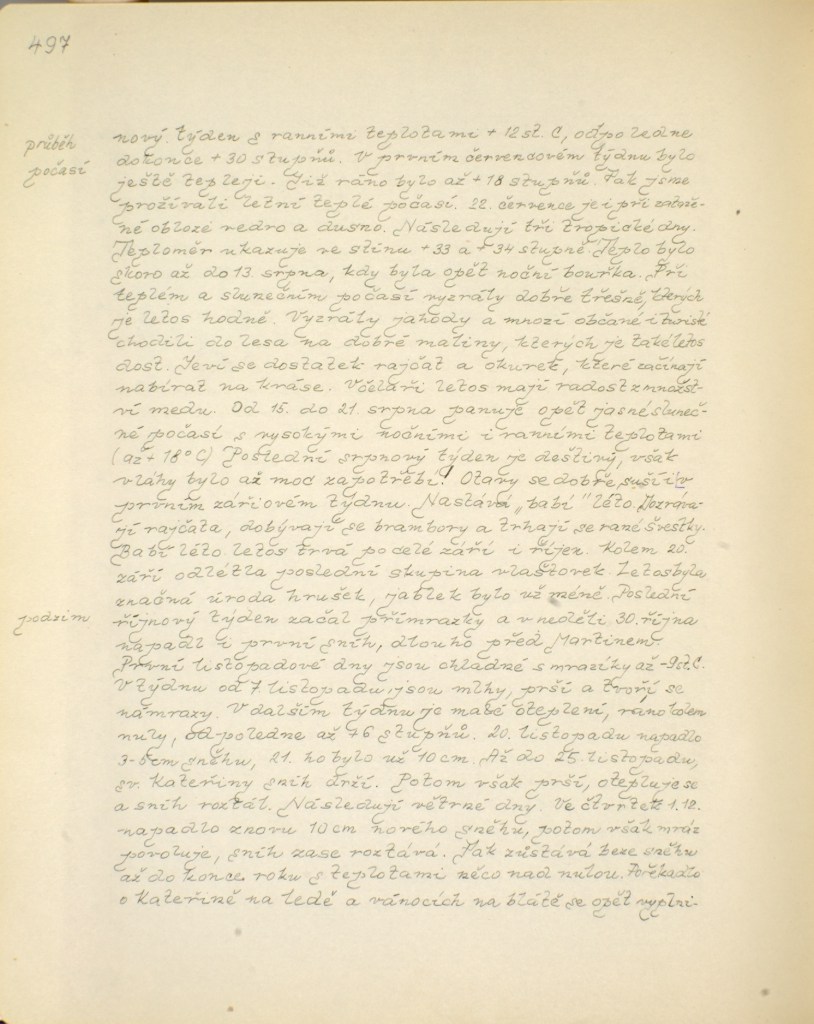 497
průběh
počasí
nový týden s ranními teplotami + 12 st. C, odpoledne
dokonce + 30 stupňů. V prvním červencovém týdnu bylo
ještě tepleji. Již ráno bylo až + 18 stupňů. Tak jsme
prožívali letní teplé počasí. 22. července je i při zataže-
né obloze vedro a dusno. Následují tři tropické dny.
Teploměr ukazuje ve stínu + 33 a + 34 stupně. Teplo bylo
skoro až do 13. srpna, kdy byla opět noční bouřka. Při
teplém a slunečním počasí vyzrály dobře třešně, kterých
je letos hodně. Vyzrály jahody a mnozí občané i turisté
chodili do lesa na dobré maliny, kterých je také letos
dost. Jeví se dostatek rajčat a okurek, které začínají
nabírat na kráse. Včelaři letos mají radost z množst-
ví medu. Od 15. do 21. srpna panuje opět jasné sluneč-
né počasí s vysokými nočními i ranními teplotami
(až + 18° C) Poslední srpnový týden je deštivý, však
vláhy bylo až moc zapotřebí! Otavy se dobře suší i v
prvním zářiovém týdnu. Nastává „babí" léto. Dozráva-
jí rajčata, dobývají se brambory a trhají se rané švestky.
Babí léto letos trvá po celé září i říjen. Kolem 20.
září odlétla poslední skupina vlaštovek. Letos byla
značná úroda hrušek, jablek bylo už méně. Poslední
podzim
říjnový týden začal přímrazky a v neděli 30. října
napadl i první sníh, dlouho před Martinem.
První listopadové dny jsou chladné s mrazíky až -9 st. C.
V týdnu od 7 listopadu, jsou mlhy, prší a tvoří se
námrazy. V dalším týdnu je malé oteplení, ráno kolem
nuly, od-poledne až +6 stupňů. 20. listopadu napadlo
3-5 cm sněhu, 21. ho bylo už 10 cm. Až do 25. listopadu,
sv. Kateřiny sníh drží. Potom však prší, otepluje se
a sníh roztál. Následují větrné dny. Ve čtvrtek 1.12.
napadlo znovu 10 cm nového sněhu, potom však mráz
povoluje, sníh zase roztává. Tak zůstává beze sněhu
až do konce roku s teplotami něco nad nulou. Pořekadlo
o Kateřině na ledě a vánocích na blátě se opět vyplni-